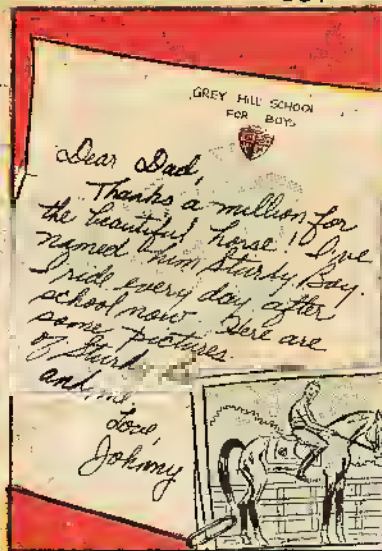 GREY HILL SCHOOL
FOR BOYS
Dear Dad,
Thanks a million for
the beautiful horse! I've
named him Sturdy Boy.
I ride every day after
school now. Here are
some pictures
of
and me
Love,
Johnny